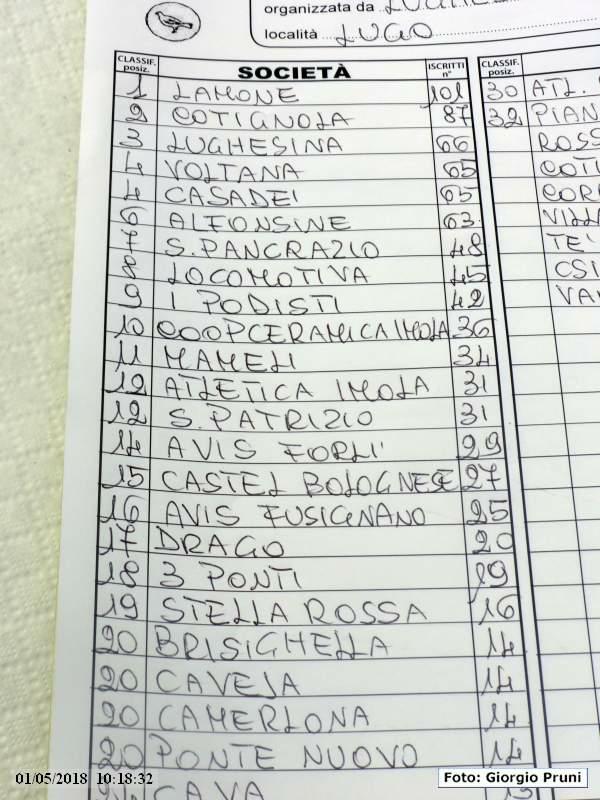 organizzata da
località LUGO
CLASSIF. posiz. SOCIETÀ ISCRITTI n° CLASSIF. posiz.
1 LAMONE 101 30 ATL.
2 COTIGNOLA 87 32 PIAN
3 LUGHESINA 66 ROSS
4 VOLTANA 65 COTI
4 CASADEI 65 COR
6 ALFONSINE 63 VILL
7 S.PANCRAZIO 48 TE'
8 LOCOMOTIVA 45 CSI
9 I PODISTI 42 VA
10 COOPCERAMICA IMOLA 36
11 MAMELI 34
12 ATLETICA IMOLA 31
12 S.PATRIZIO 31
14 AVIS FORLI' 29
15 CASTEL BOLOGNESE 27
16 AVIS FUSIGNANO 25
17 DRAGO 20
18 3 PONTI 19
19 STELLA ROSSA 16
20 BRISIGHELLA 14
20 CAVEJA 14
20 CAMERLONA 14
20 PONTE NUOVO 14
CAVA
01/05/2018 10:18:32
Foto: Giorgio Pruni